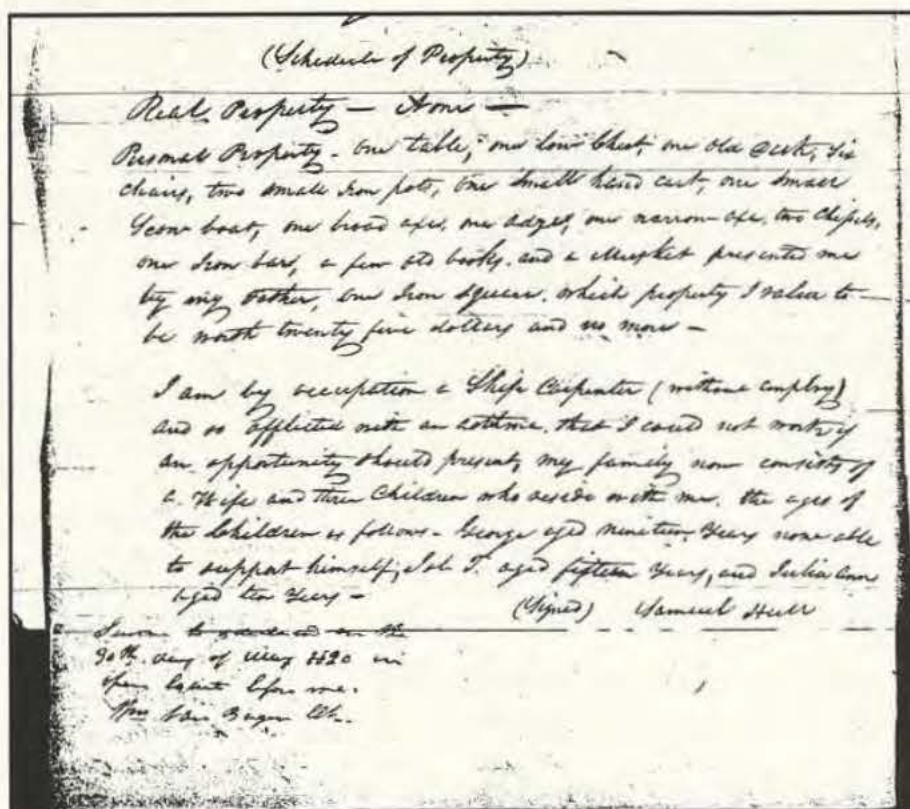 (Schedule of Property)
Real Property — None —
Personal Property - One table, one low Chest, one old Desk, six
chairs, two small Iron pots, one small hand cart, one small
Scow boat, one broad axe, one adze, one narrow axe, two Chisels,
one Iron bar, a few old books, and a Musket presented me
by my Father, one Iron Square, which property I value to
be worth twenty five dollars and no more —
I am by occupation a Ship Carpenter (without employ)
and so afflicted with an asthma, that I could not work if
an opportunity should present, my family now consists of
a Wife and three Children who reside with me, the ages of
the Children as follows - George aged nineteen Years now able
to support himself, Job T. aged fifteen Years, and Julia Ann
aged ten Years —
(Signed) Samuel Hull
Sworn to on the
30th day of May 1820 in
open Court before me.
Wm Van